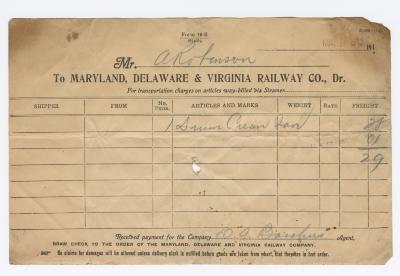 Form 18-S
191
Mr. A Robinson
To MARYLAND, DELAWARE & VIRGINIA RAILWAY CO., Dr.
For transportation charges on articles way-billed via Steamer
SHIPPER FROM No. Pkgs. ARTICLES AND MARKS WEIGHT RATE FREIGHT
1 Drum Cream 28
01
29
Received payment for the Company, Agent.
DRAW CHECK TO THE ORDER OF THE MARYLAND, DELAWARE AND VIRGINIA RAILWAY COMPANY.
No claims for damages will be allowed unless delivery clerk is notified before goods are taken from wharf, that they are in bad order.